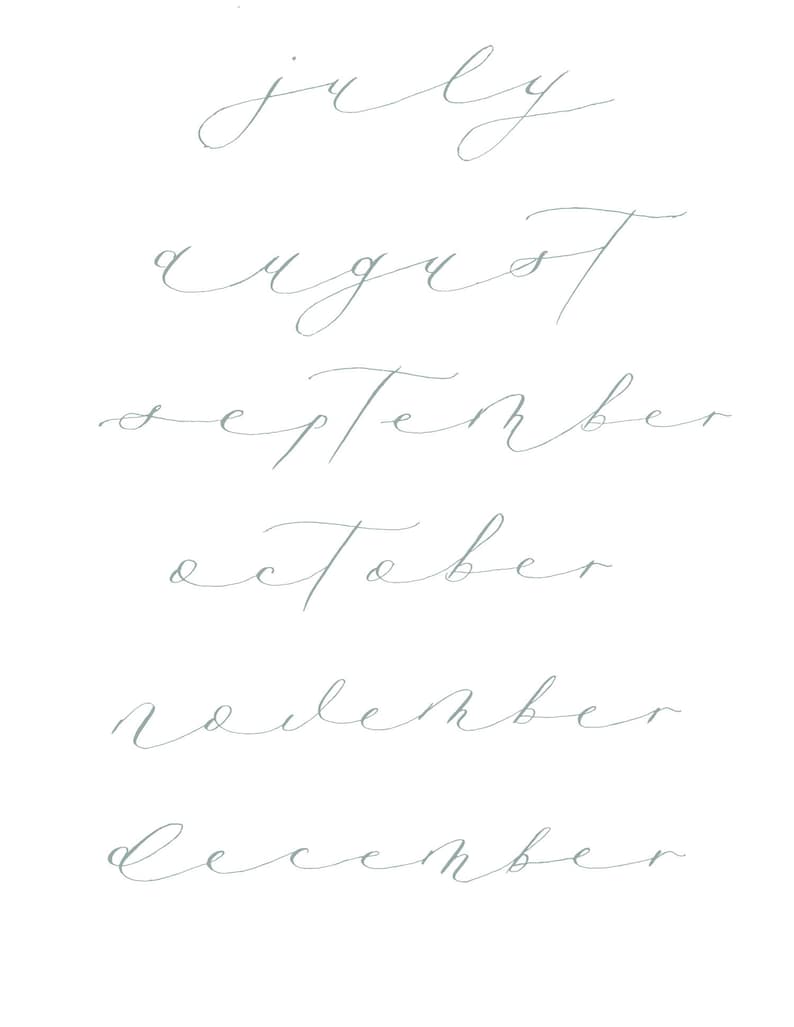 july
august
september
october
november
december